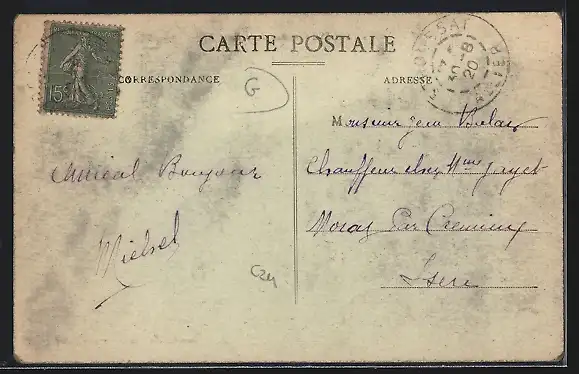 CARTE POSTALE
CORRESPONDANCE
ADRESSE
G
15c
30 - 8
20
Monsieur Jean
Chauffeur chez Mme Jayet
Amical Bonjour
Moras par Cremieu
Michel
Isere